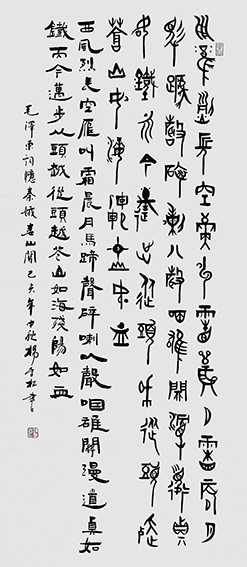 西風烈長空雁叫霜晨月霜晨月
馬蹄聲碎喇叭聲咽雄關漫道真
如鐵而今邁步從頭越從頭越
蒼山如海殘陽如血
西風烈長空雁叫霜晨月馬蹄聲碎喇叭聲咽雄關漫道真如
鐵而今邁步从頭越從頭越蒼山如海殘陽如血
毛澤東詞憶秦娥婁山關己亥年中秋楊